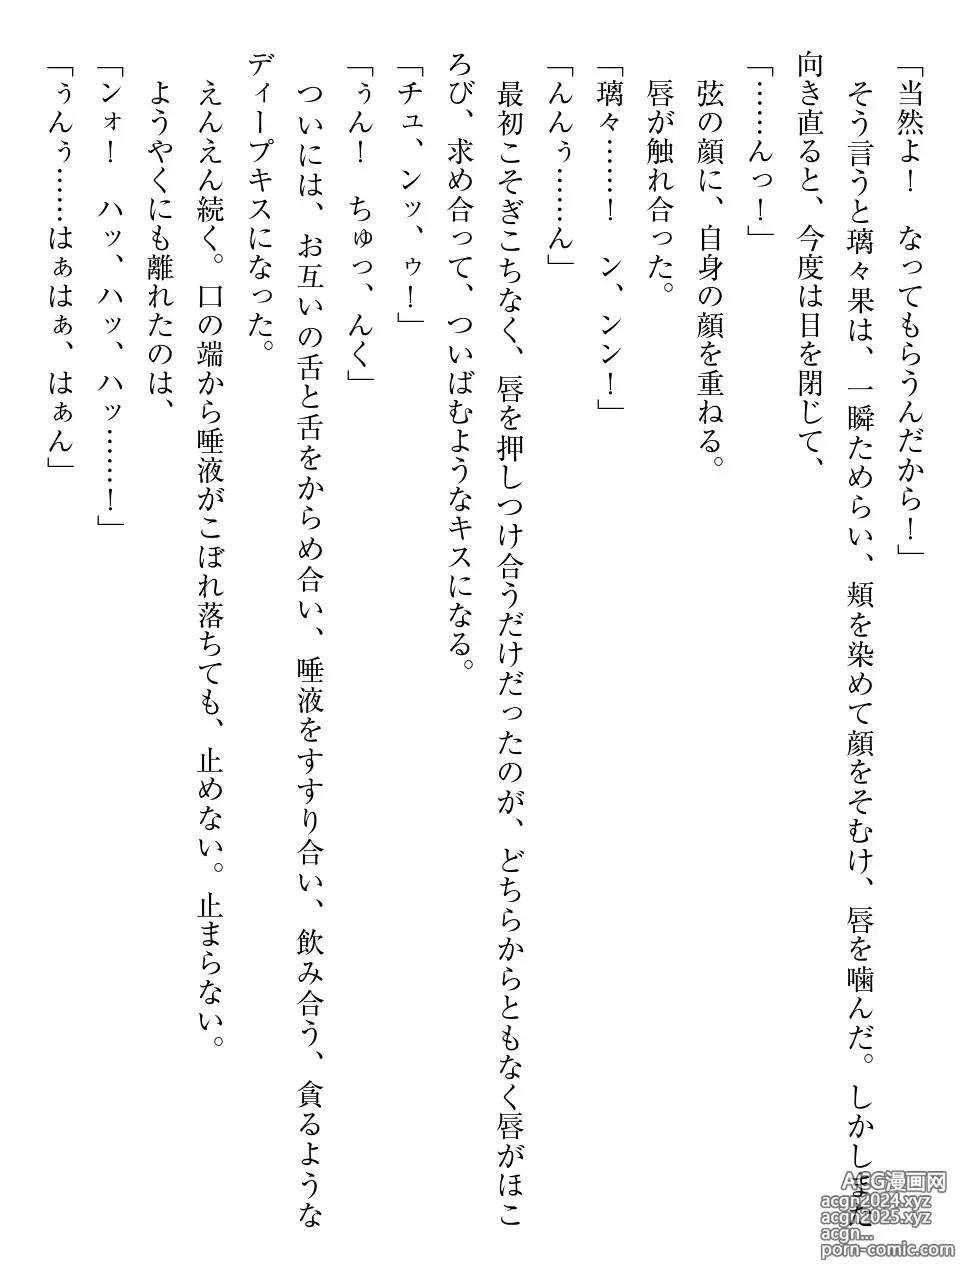 「当然よ！　なってもらうんだから！」
　そう言うと璃々果は、一瞬ためらい、頬を染めて顔をそむけ、唇を噛んだ。しかしまた
向き直ると、今度は目を閉じて、
「……んっ！」
　弦の顔に、自身の顔を重ねる。
　唇が触れ合った。
「璃々……！　ン、ンン！」
「んんぅ……ん」
　最初こそぎこちなく、唇を押しつけ合うだけだったのが、どちらからともなく唇がほこ
ろび、求め合って、ついばむようなキスになる。
「チュ、ンッ、ゥ！」
「ぅん！　ちゅっ、んく」
　ついには、お互いの舌と舌をからめ合い、唾液をすすり合い、飲み合う、貪るような
ディープキスになった。
　えんえん続く。口の端から唾液がこぼれ落ちても、止めない。止まらない。
　ようやくにも離れたのは、
「ンォ！　ハッ、ハッ、ハッ……！」
「ぅんぅ……はぁはぁ、はぁん」
ACG漫画网
acgn2024.xyz
acgn2025.xyz
acgn...
porn-comic.com